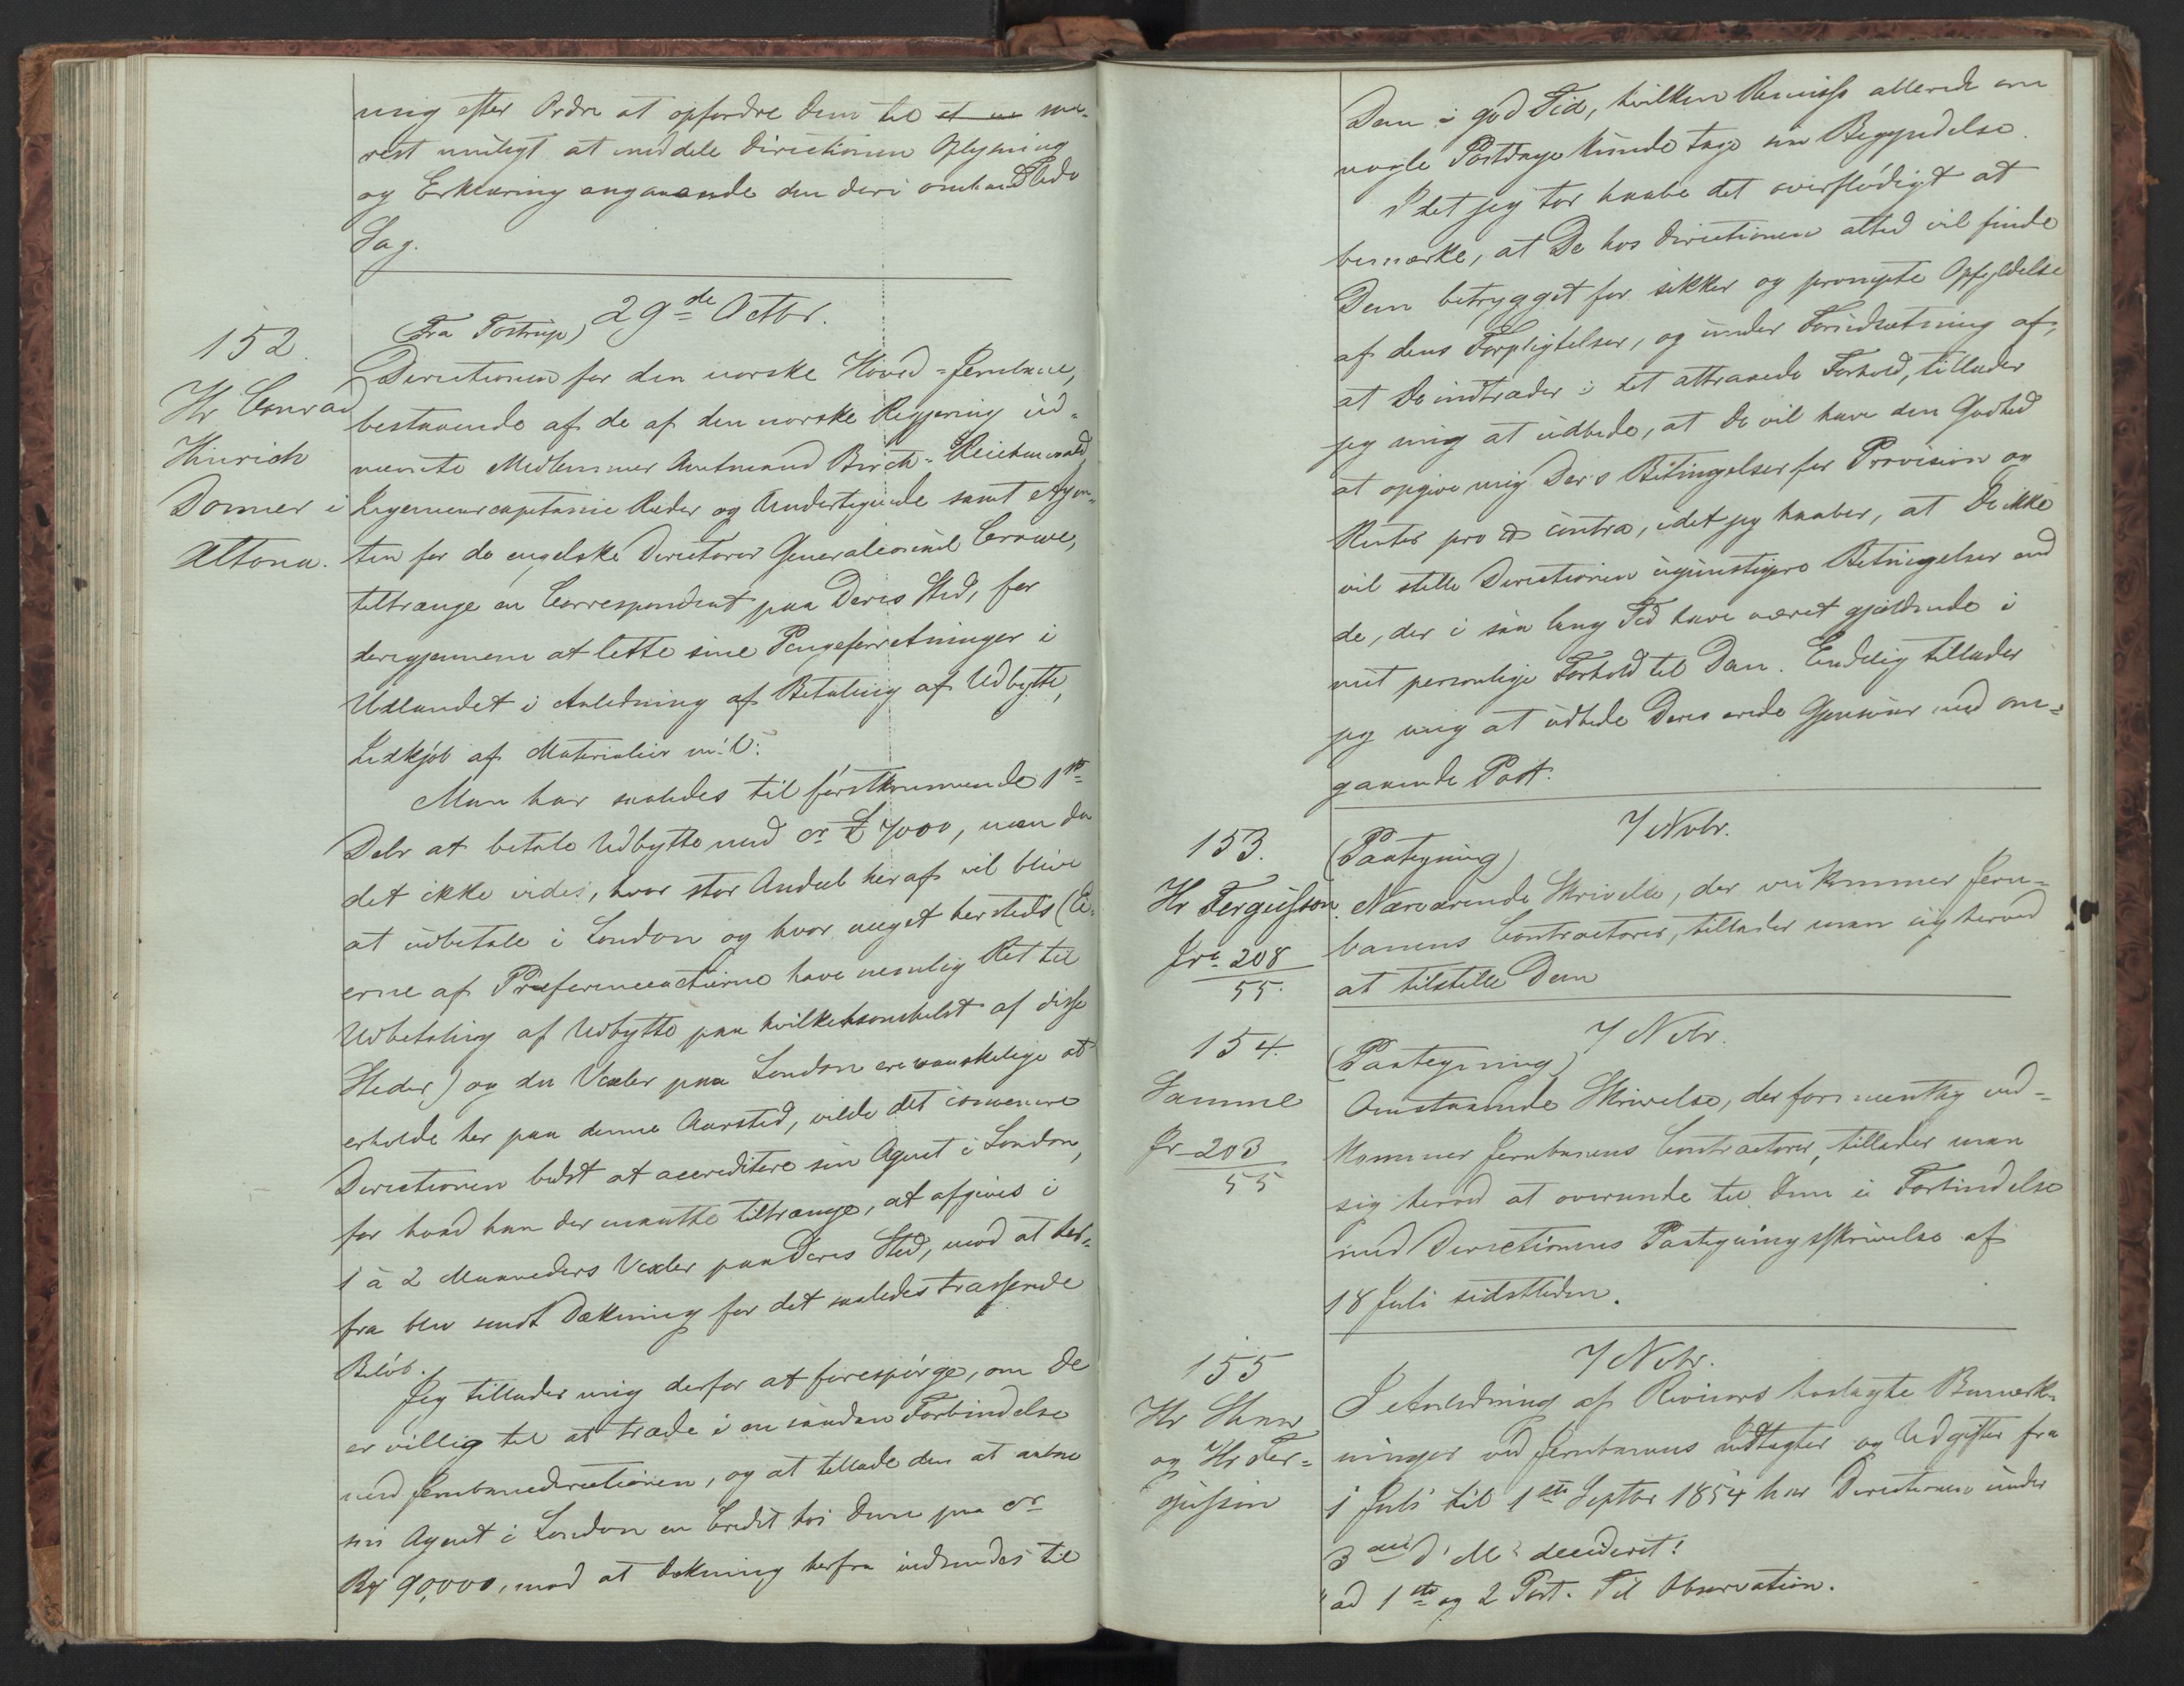 mig efter Ordre at opfordre Dem til et en sna-
rest muligt at meddele Directionen Oplysning
og Erklæring angaaende den deri omhandlede
Sag.
29de Octbr.
152.
(Fra Tostrup)
Hr Conrad
Hinrich
Donner i
Altona.
Directionen for den norske Hoved-Jernbane,
bestaaende af de af den norske Regjering ud-
nævnte Medlemmer Amtmand Birch-Reichenwald,
Ingenieurcapitaine Ræder og Undertegnede samt Agen-
ten for de engelske Directører Generalconsul Crowe,
tiltrænge en Correspondent paa Deres Sted, for
derigjennem at lette sine Pengeforretninger i
Udlandet i Anledning af Betaling af Udbytte,
Indkjøb af Materialier m. v.
Man har saaledes til førstkommende 1ste
Debr at betale Udbytte med cr £ 7000, men da
det ikke vides, hvor stor Andeel heraf vil blive
at udbetale i London og hvor meget hersteds (Ei-
erne af Præferenceactierne have nemlig Ret til
Udbetaling af Udbytte paa hvilketsomhelst af disse
Steder) og da Vexler paa London ere vanskelige at
erholde her paa denne Aarstid, vilde det convenere
Directionen bedst at accreditere sin Agent i London,
for hvad han der maatte tiltrænge, at afgives i
1 à 2 Maaneders Vexler paa Deres Sted, mod at her-
fra blev sendt Dækning for det saaledes trasserede
Beløb.
Jeg tillader mig derfor at forespørge, om De
er villig til at træde i en saadan Forbindelse
med Jernbanedirectionen, og at tillade den at aabne
sin Agent i London en Credit hos Dem paa cr
90,000, mod at Dækning herfra indsendes til
Dem i god Tid, hvilken Remisse allerede om
nogle Postdage kunde tage sin Begyndelse.
Idet jeg tør haabe det overflødigt at
bemærke, at De hos Directionen altid vil finde
Dem betrygget for sikker og prompte Opfyldelse
af dens Forpligtelser, og under Forudsætning af,
at De indtræder i det attraaede Forhold, tillader
jeg mig at udbede, at De vil have den Godhed
at opgive mig Deres Betingelser for Provision og
Renter pro & contra, idet jeg haaber, at De ikke
vil stille Directionen ugunstigere Betingelser end
de, der i saa lang Tid have været gjældende i
mit personlige Forhold til Dem. Endelig tillader
jeg mig at udbede Deres ærede Gjensvar med om-
gaaende Post.
7 Novbr.
153.
Hr Fergusson.
Jre 208
55.
(Paategning)
Nærværende Skrivelse, der vedkommer Jern-
banens Contractorer, tillader man sig herved
at tilstille Dem
7 Novbr.
154.
Samme
Jr 203
55
(Paategning)
Omstaaende Skrivelse, der formentlig ved-
kommer Jernbanens Contractorer, tillader man
sig herved at oversende til Dem i Forbindelse
med Directionens Paategningsskrivelse af
18 Juli sidstleden.
7 Novbr.
155
Hr
og Hr Fer-
gusson
I Anledning af Revisors hoslagte Bemærk-
ninger ved Jernbanens Indtægter og Udgifter fra
1 Juli til 1ste Septbr 1854 har Directionen under
3die d. M. decideret:
"ad 1ste og 2 Post. Til Observation.